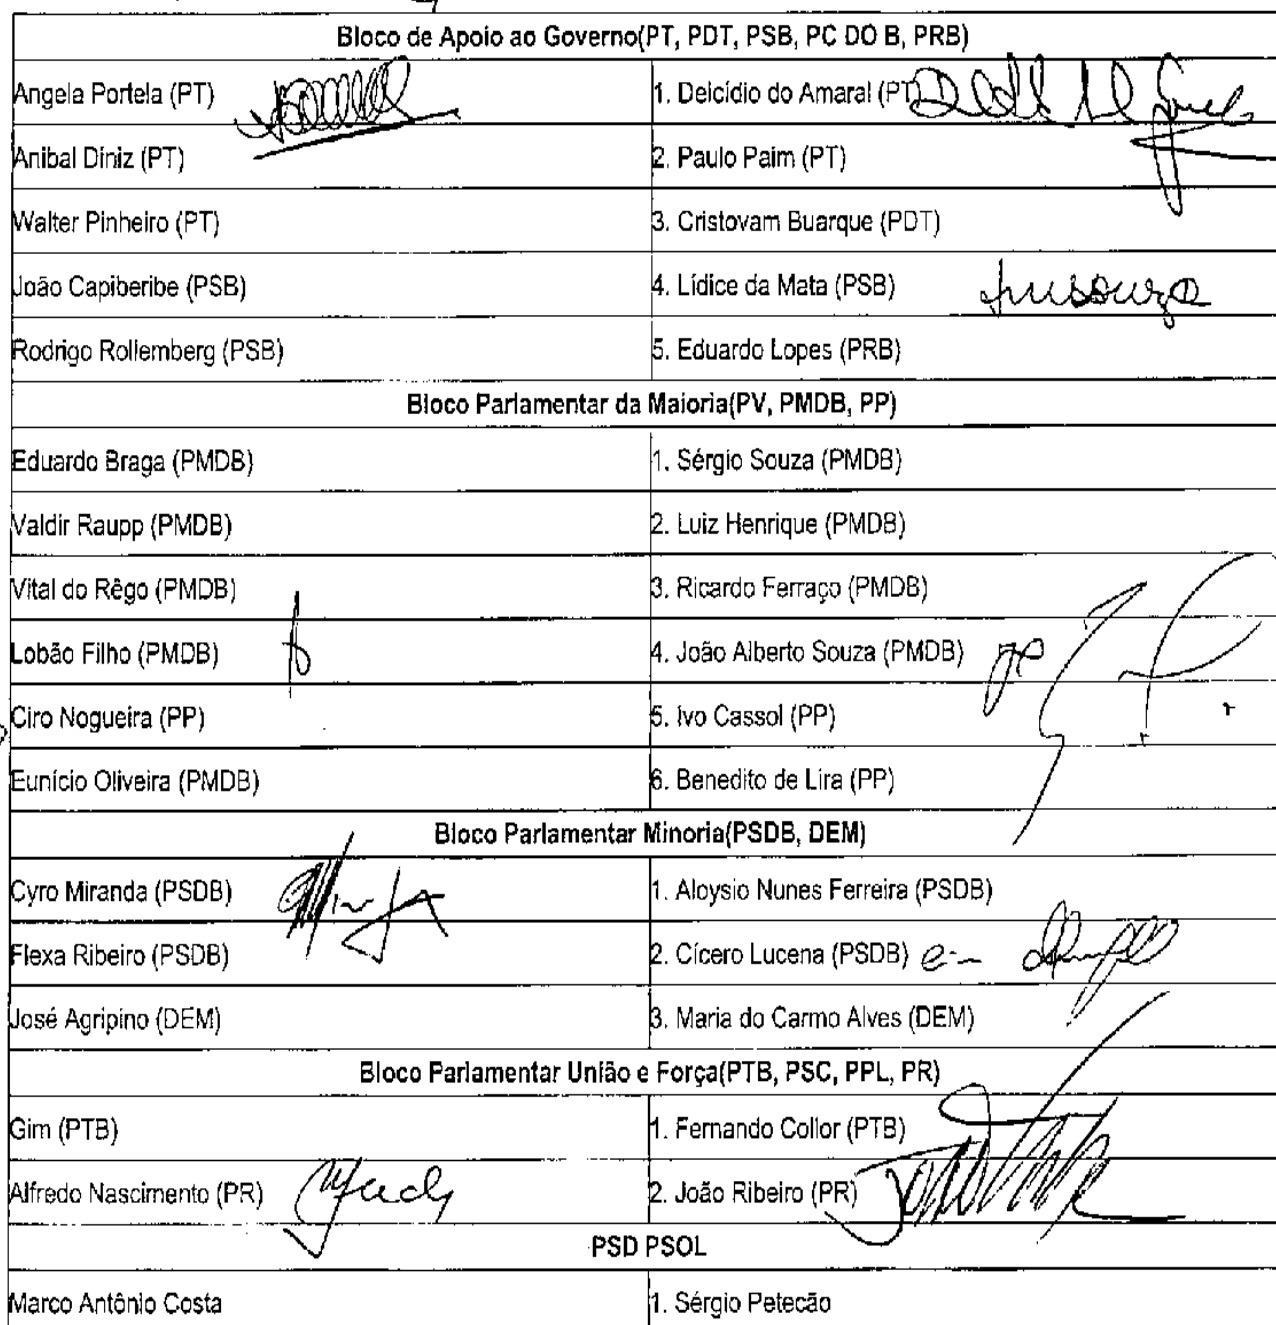 Bloco de Apoio ao Governo(PT, PDT, PSB, PC DO B, PRB)
Angela Portela (PT) 1. Delcídio do Amaral (PT)
Anibal Diniz (PT) 2. Paulo Paim (PT)
Walter Pinheiro (PT) 3. Cristovam Buarque (PDT)
João Capiberibe (PSB) 4. Lídice da Mata (PSB)
Rodrigo Rollemberg (PSB) 5. Eduardo Lopes (PRB)
Bloco Parlamentar da Maioria(PV, PMDB, PP)
Eduardo Braga (PMDB) 1. Sérgio Souza (PMDB)
Valdir Raupp (PMDB) 2. Luiz Henrique (PMDB)
Vital do Rêgo (PMDB) 3. Ricardo Ferraço (PMDB)
Lobão Filho (PMDB) 4. João Alberto Souza (PMDB)
Ciro Nogueira (PP) 5. Ivo Cassol (PP)
Eunício Oliveira (PMDB) 6. Benedito de Lira (PP)
Bloco Parlamentar Minoria(PSDB, DEM)
Cyro Miranda (PSDB) 1. Aloysio Nunes Ferreira (PSDB)
Flexa Ribeiro (PSDB) 2. Cícero Lucena (PSDB)
José Agripino (DEM) 3. Maria do Carmo Alves (DEM)
Bloco Parlamentar União e Força(PTB, PSC, PPL, PR)
Gim (PTB) 1. Fernando Collor (PTB)
Alfredo Nascimento (PR) 2. João Ribeiro (PR)
PSD PSOL
Marco Antônio Costa 1. Sérgio Petecão